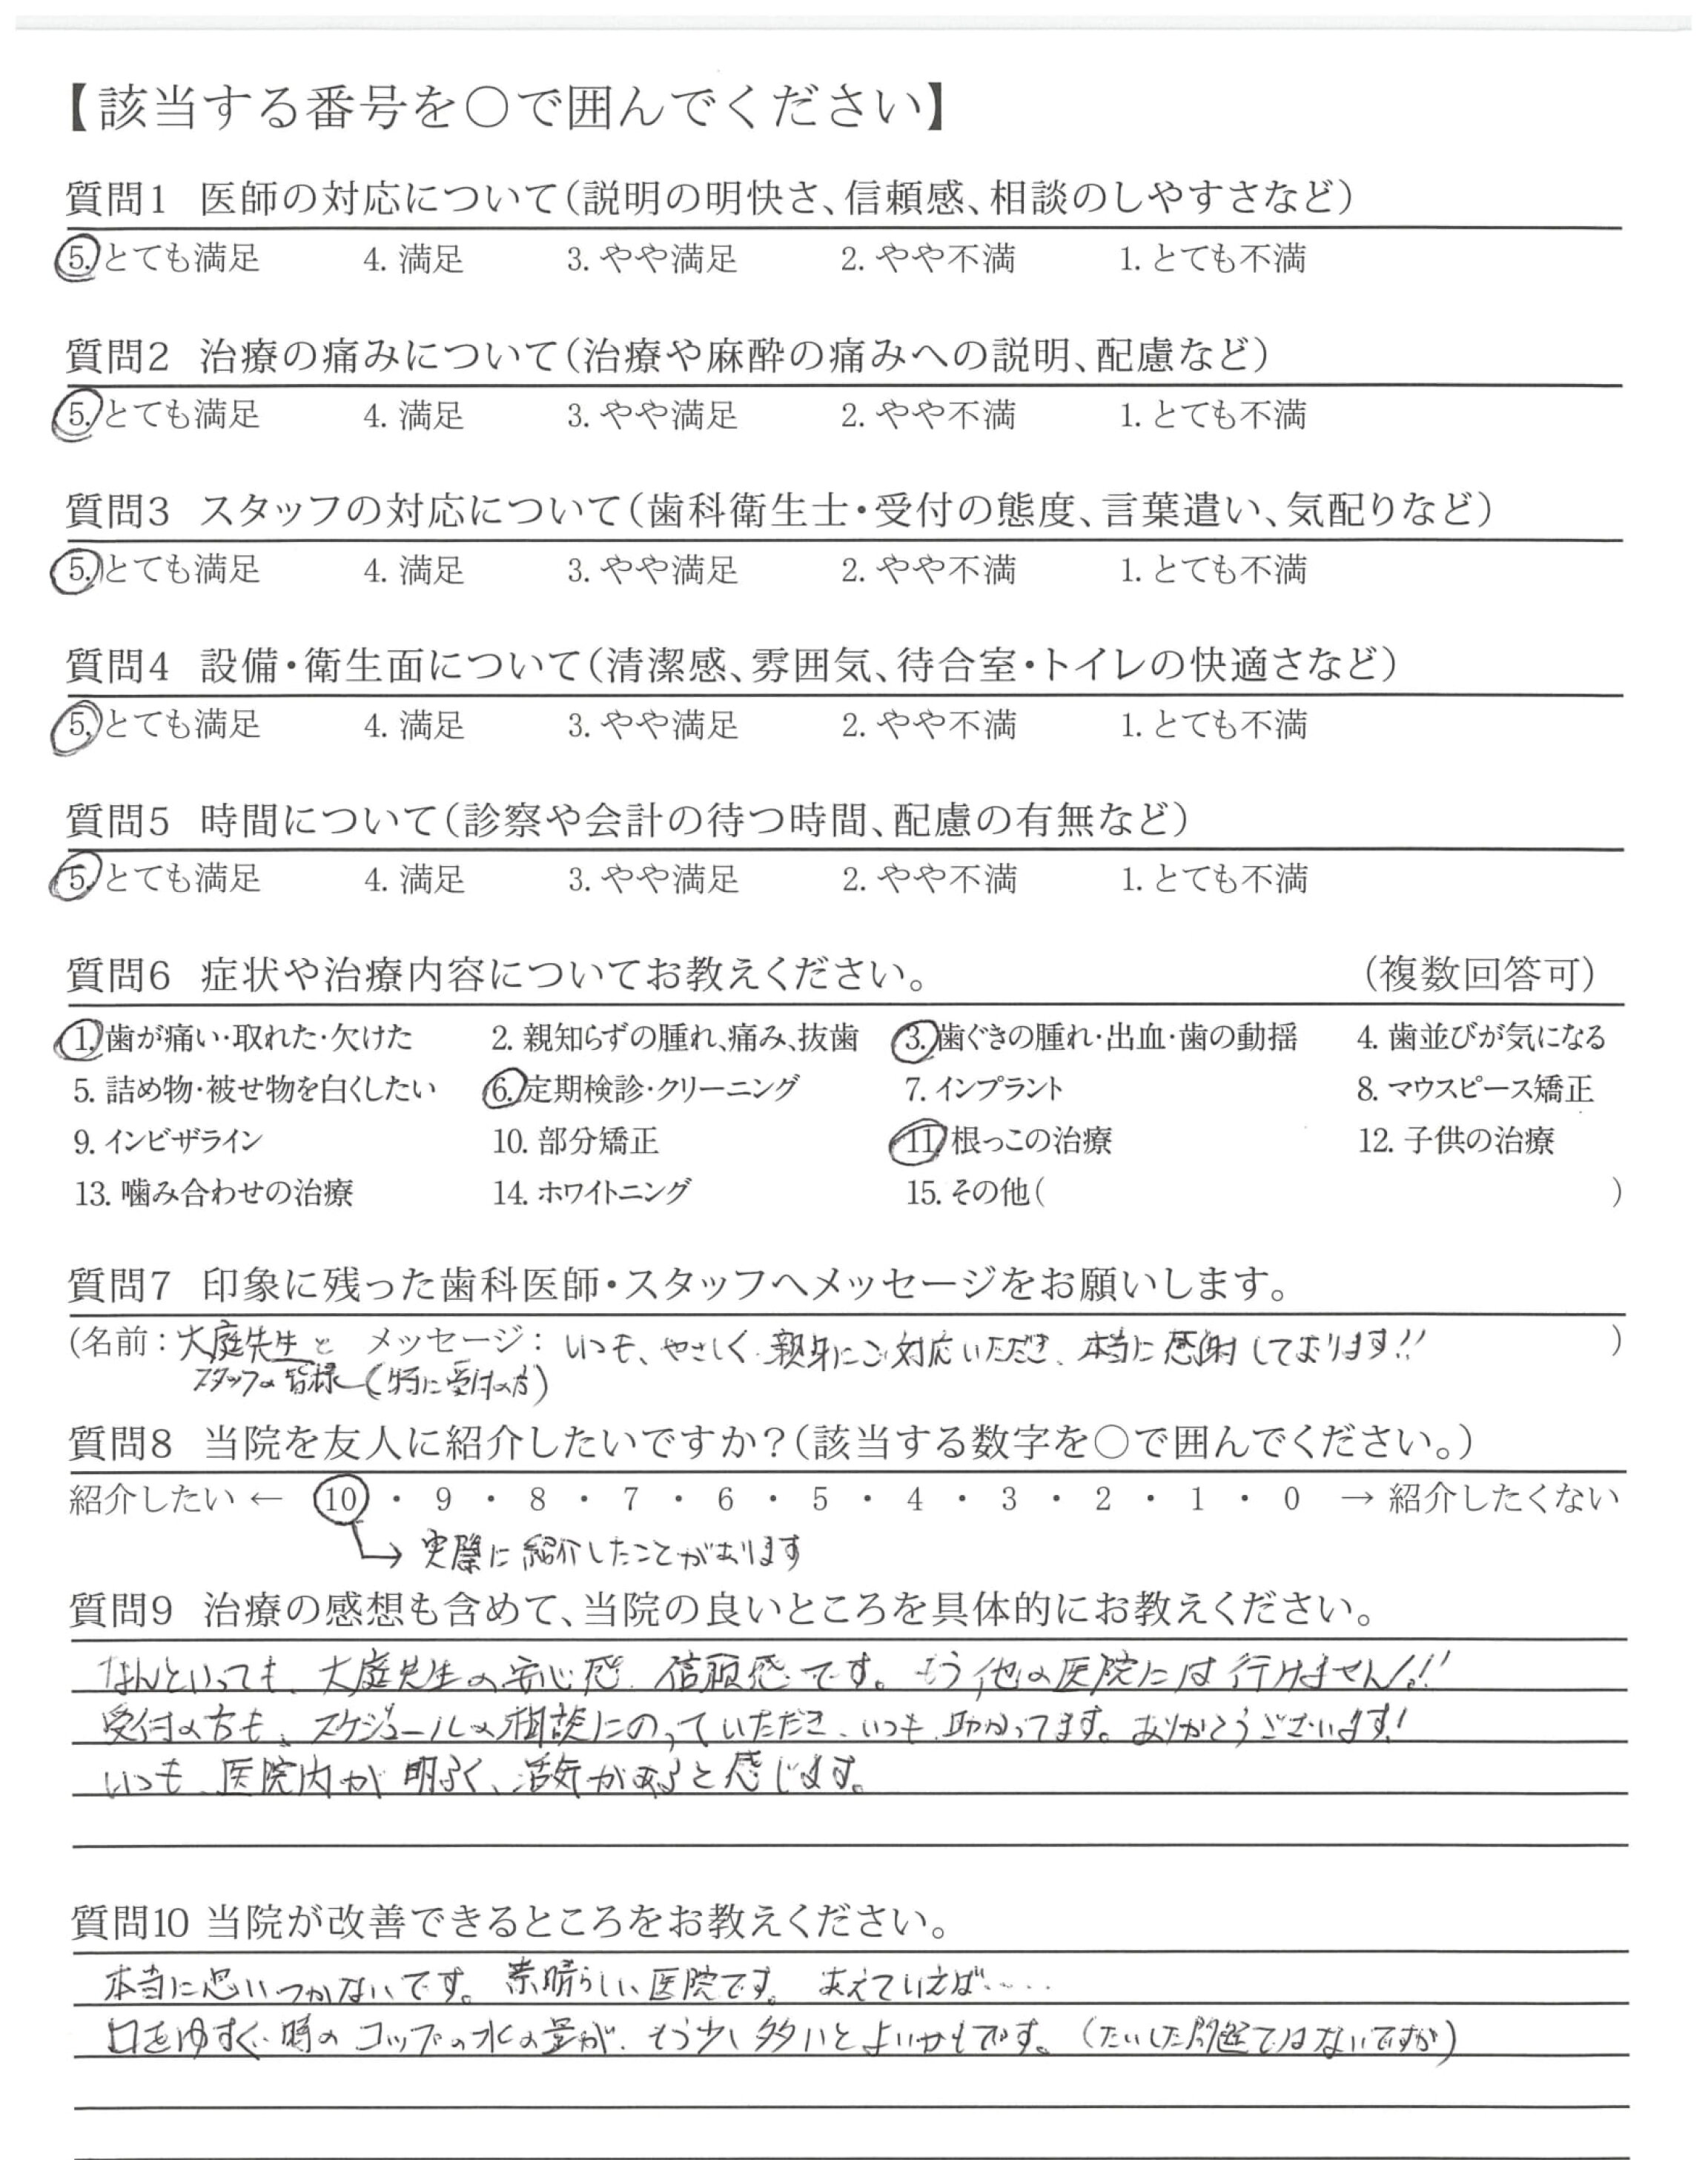 【該当する番号を○で囲んでください】
質問1 医師の対応について(説明の明快さ、信頼感、相談のしやすさなど)
5. とても満足 4. 満足 3. やや満足 2. やや不満 1. とても不満
質問2 治療の痛みについて(治療や麻酔の痛みへの説明、配慮など)
5. とても満足 4. 満足 3. やや満足 2. やや不満 1. とても不満
質問3 スタッフの対応について(歯科衛生士・受付の態度、言葉遣い、気配りなど)
5. とても満足 4. 満足 3. やや満足 2. やや不満 1. とても不満
質問4 設備・衛生面について(清潔感、雰囲気、待合室・トイレの快適さなど)
5. とても満足 4. 満足 3. やや満足 2. やや不満 1. とても不満
質問5 時間について(診察や会計の待つ時間、配慮の有無など)
5. とても満足 4. 満足 3. やや満足 2. やや不満 1. とても不満
質問6 症状や治療内容についてお教えください。 (複数回答可)
1. 歯が痛い・取れた・欠けた 2. 親知らずの腫れ、痛み、抜歯 3. 歯ぐきの腫れ・出血・歯の動揺 4. 歯並びが気になる
5. 詰め物・被せ物を白くしたい 6. 定期検診・クリーニング 7. インプラント 8. マウスピース矯正
9. インビザライン 10. 部分矯正 11. 根っこの治療 12. 子供の治療
13. 噛み合わせの治療 14. ホワイトニング 15. その他( )
質問7 印象に残った歯科医師・スタッフへメッセージをお願いします。
(名前：大庭先生と メッセージ：いつも、やさしく、親身にご対応いただき、本当に感謝しております!! )
スタッフの皆様(特に受付の方)
質問8 当院を友人に紹介したいですか?(該当する数字を○で囲んでください。)
紹介したい ← 10 ・ 9 ・ 8 ・ 7 ・ 6 ・ 5 ・ 4 ・ 3 ・ 2 ・ 1 ・ 0 → 紹介したくない
→ 実際に紹介したことがあります
質問9 治療の感想も含めて、当院の良いところを具体的にお教えください。
なんといっても、大庭先生の安心感、信頼感です。もう他の医院には行けません!!
受付の方も、スケジュールの相談にのっていただき、いつも助かってます。ありがとうございます!
いつも、医院内が明るく、活気があると感じます。
質問10 当院が改善できるところをお教えください。
本当に思いつかないです。素晴らしい医院です。あえていえば・・・・
口をゆすぐ時のコップの水の量が、もう少し多いとよいかもです。(たいした問題ではないですが)